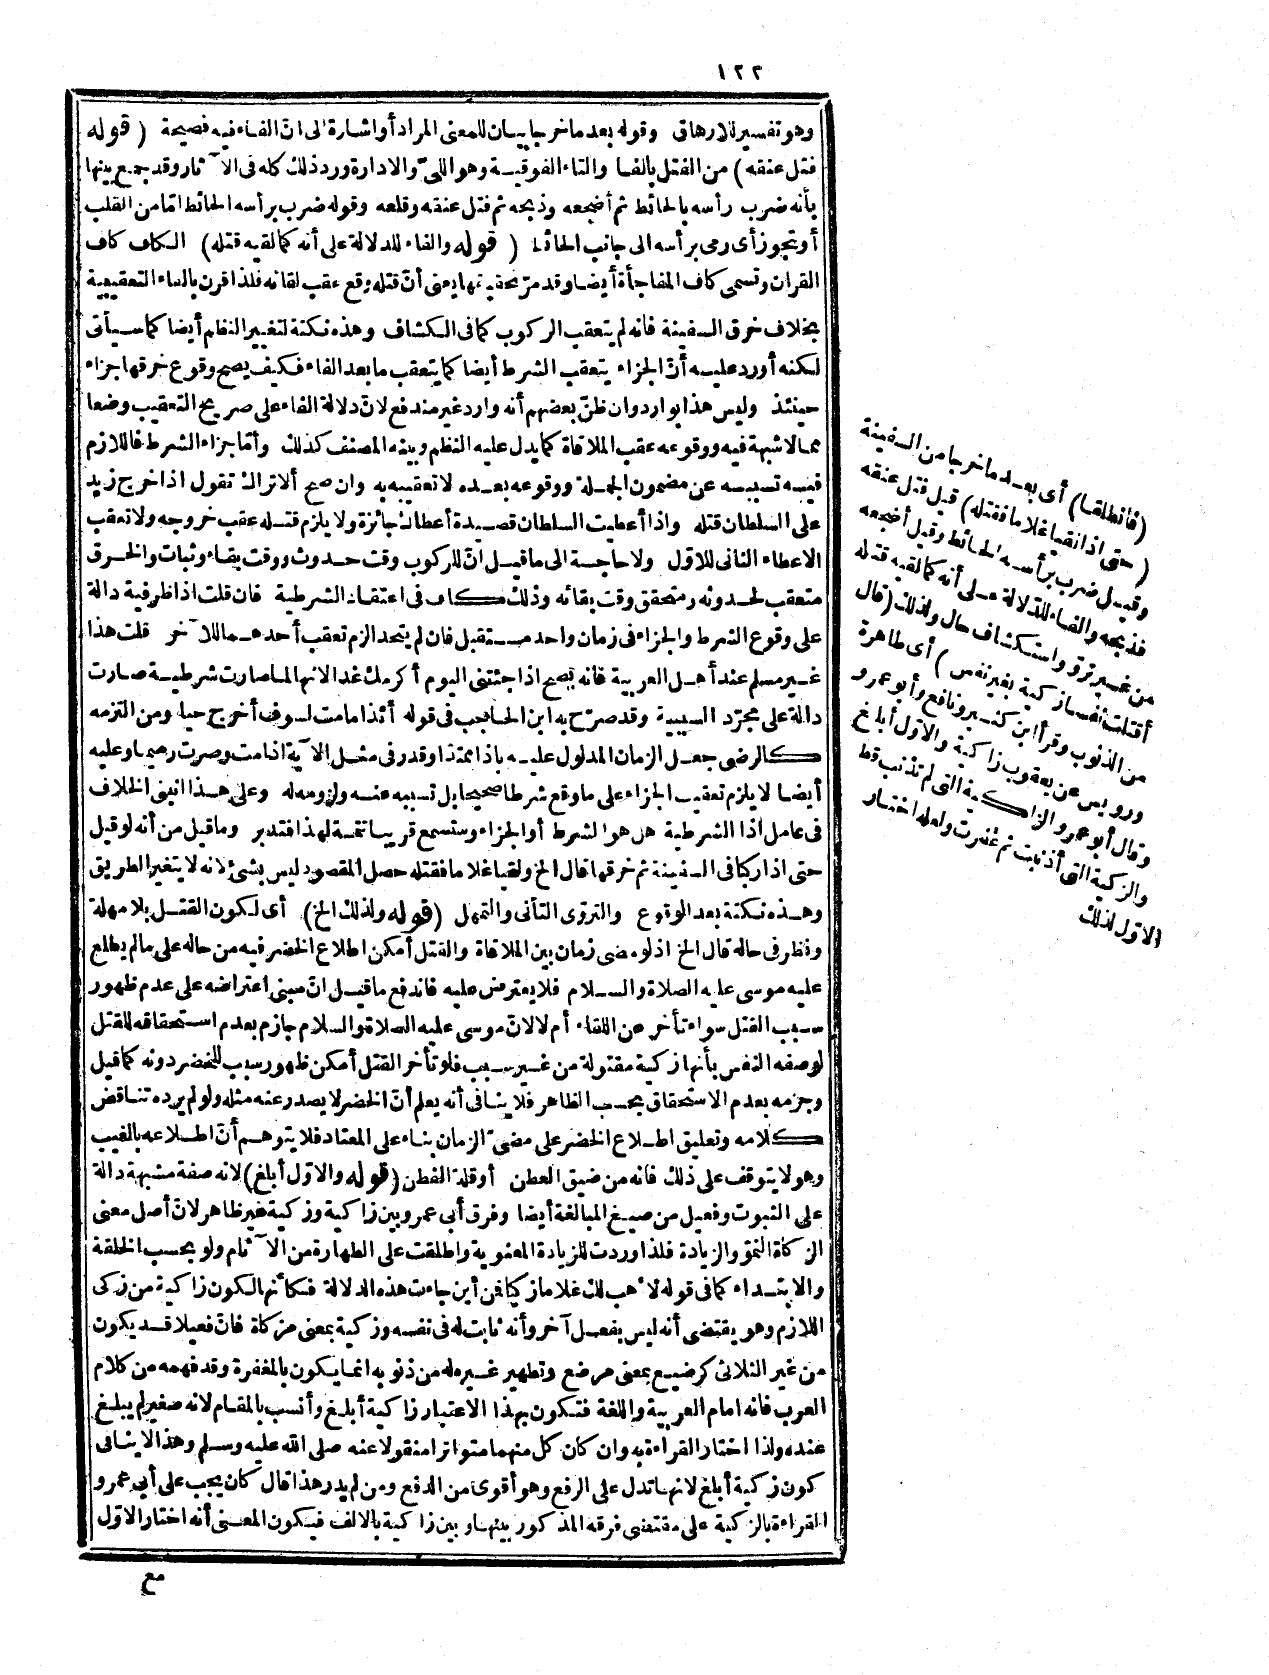 ١٢٢
وهو تفسير للارهاق وقوله بعد ما خرجا بيان للمعنى المراد أو اشارة الى انّ الفاء فيه فصيحة (قوله
فتل عنقه) من الفتل بالفا والتاء الفوقية وهو اللىّ والادارة ورد ذلك كله فى الآثار وقد جمع بينها
بأنه ضرب رأسه بالحائط ثم أضجعه وذبحه ثم فتل عنقه وقلعه وقوله ضرب برأسه الحائط امّا من القلب
أو تجوز أى رمى برأسه الى جانب الحائط (قوله والفاء للدلالة على أنه كما لقيه قتله) الكاف كاف
القران وتسمى كاف المفاجأة أيضا وقد مرّ تحقيقها يعنى أنّ قتله وقع عقب لقائه فلذا قرن بالفاء التعقيبية
بخلاف خرق السفينة فانه لم يتعقب الركوب كما فى الكشاف وهذه نكتة لتغيير النظم أيضا كما سيأتى
لكنه أورد عليه أنّ الجزاء يتعقب الشرط أيضا كما يتعقب ما بعد الفاء فكيف يصح وقوع خرقها جزاء
حينئذ وليس هذا بوارد وان ظنّ بعضهم أنه وارد غير مندفع لانّ دلالة الفاء على صريح التعقيب وضعا
مما لا شبهة فيه ووقوعه عقب الملاقاة كما يدل عليه النظم وبينه المصنف كذلك وأمّا جزاء الشرط فاللازم
فيه تسببه عن مضمون الجملة ووقوعه بعده لا تعقيبه به وان صح ألا تراك تقول اذا خرج زيد
على السلطان قتله واذا أعطيت السلطان قصيدة أعطاك جائزة ولا يلزم قتله عقب خروجه ولا تعقب
الاعطاء الثانى للاوّل ولا حاجة الى ما قيل انّ للركوب وقت حدوث ووقت بقاء وثبات والخرق
متعقب لحدوثه ومتحقق وقت بقائه وذلك كاف فى اعتقاد الشرطية فان قلت اذا ظرفية دالة
على وقوع الشرط والجزاء فى زمان واحد مستقبل فان لم يتحد الزم تعقب أحدهما للآخر قلت هذا
غير مسلم عند أهل العربية فانه يصح اذا جئتنى اليوم أكرمك غدا لانها لما صارت شرطية صارت
دالة على مجرّد السببية وقد صرّح به ابن الحاجب فى قوله أئذا ما مت لسوف أخرج حيا ومن التزمه
كالرضى جعل الزمان المدلول عليه باذا ممتدا وقدر فى مثل الآية اذا مت وصرت رميما وعليه
أيضا لا يلزم تعقيب الجزاء على ما وقع شرطا صحيحا بل تسببه عنه ولزومه له وعلى هذا انبنى الخلاف
فى عامل اذا الشرطية هل هو الشرط أو الجزاء وستسمع قريبا تتمة لهذا فتدبر وما قيل من أنه لو قيل
حتى اذا ركبا فى السفينة ثم خرقها قال الخ ولقيا غلاما فقتله حصل المقصود ليس بشئ لانه لا يتغير الطريق
وهذه نكتة بعد الوقوع والتروّى التأنى والتمهل (قوله ولذلك الخ) أى لكون القتل بلا مهلة
ونظر فى حاله قال الخ اذ لو مضى زمان بين الملاقاة والقتل أمكن اطلاع الخضر فيه من حاله على ما لم يطلع
عليه موسى عليه الصلاة والسلام فلا يعترض عليه فاندفع ما قيل انّ مبنى اعتراضه على عدم ظهور
سبب القتل سواء تأخر عن اللقاء أم لا لانّ موسى عليه الصلاة والسلام جازم بعدم استحقاقه للقتل
لوصفه النفس بأنها زكية مقتولة من غير سبب فلو تأخر القتل أمكن ظهور سبب للخضر دونه كما قيل
وجزمه بعدم الاستحقاق بحسب الظاهر فلا ينافى أنه يعلم أنّ الخضر لا يصدر عنه مثله ولو لم يرده تناقض
كلامه وتعليق اطلاع الخضر على مضىّ الزمان بناء على المعتاد فلا يتوهم أنّ اطلاعه بالغيب
وهو لا يتوقف على ذلك فانه من ضيق العطن أو قلة الفطن (قوله والاوّل أبلغ) لانه صفة مشبهة دالة
على الثبوت وفعيل من صيغ المبالغة أيضا وفرق أبى عمرو بين زاكية وزكية غير ظاهر لانّ أصل معنى
الزكاة النموّ والزيادة فلذا وردت للزيادة المعنوية واطلقت على الطهارة من الآثام ولو بحسب الخلقة
والابتداء كما فى قوله لأهب لك غلاما زكيا فن أين جاءت هذه الدلالة فكأنها لكون زاكية من زكى
اللازم وهو يقتضى أنه ليس بفعل آخر وأنه ثابت له فى نفسه وزكية بمعنى مزكاة فانّ فعيلا قد يكون
من غير الثلاثى كرضيع بمعنى مرضع وتطهير غيره له من ذنوبه انما يكون بالمغفرة وقد فهمه من كلام
العرب فانه امام العربية واللغة فتكون بهذا الاعتبار زاكية أبلغ وأنسب بالمقام لانه صغير لم يبلغ
عنده ولذا اختار القراءة به وان كان كل منهما متواترا منقولا عنه صلى الله عليه وسلم وهذا لا ينافى
كون زكية أبلغ لانها تدل على الرفع وهو أقوى من الدفع ومن لم يدر هذا قال كان يجب على أبى عمرو
القراءة بالزكية على مقتضى فرقه المذكور بينها وبين زاكية بالالف فيكون المعنى أنه اختار الاوّل
مع
(فانطلقا) أى بعد ما خرجا من السفينة
(حتى اذا لقيا غلاما فقتله) قيل فتل عنقه
وقيل ضرب برأسه الحائط وقيل أضجعه
فذبحه والفاء للدلالة على أنه كما لقيه قتله
من غير تروّ واستكشاف حال ولذلك (قال
أقتلت نفسا زكية بغير نفس) أى طاهرة
من الذنوب وقرأ ابن كثير ونافع وأبو عمرو
ورويس عن يعقوب زاكية والاوّل أبلغ
وقال أبو عمرو الزاكية التى لم تذنب قط
والزكية التى أذنبت ثم غفرت ولعله اختار
الاوّل لذلك